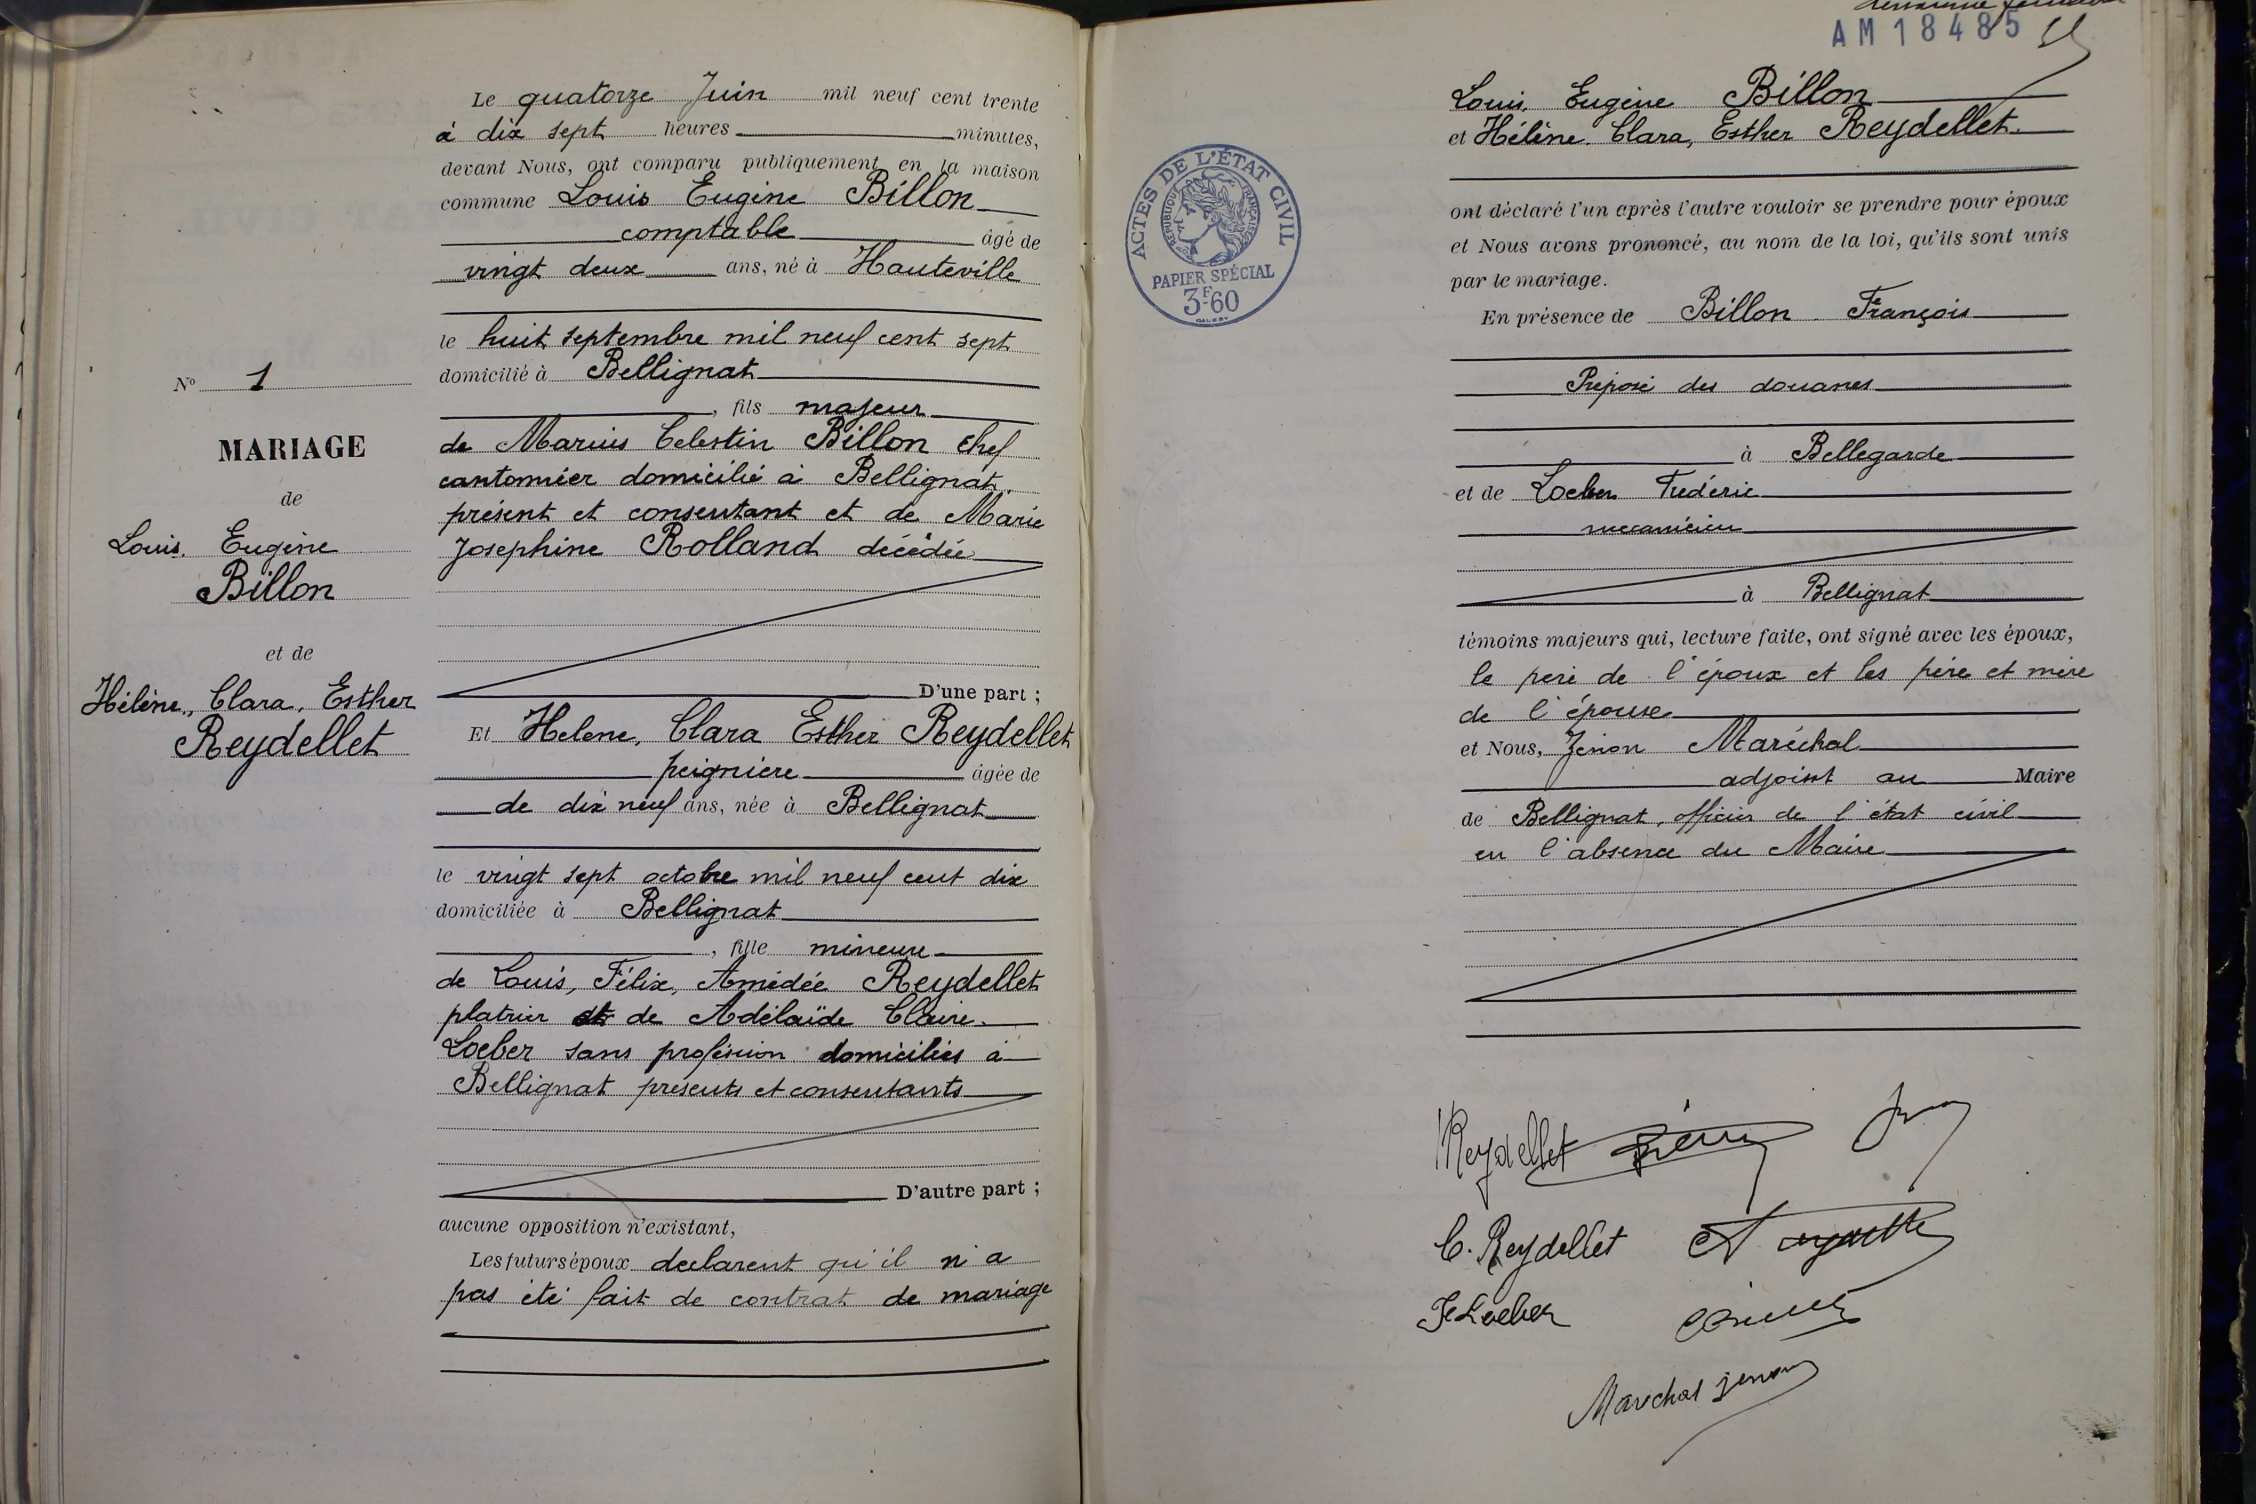 Le quatorze Juin mil neuf cent trente
à dix sept heures minutes,
devant Nous, ont comparu publiquement en la maison
commune Louis Eugène Billon
comptable âgé de
vingt deux ans, né à Hauteville
le huit septembre mil neuf cent sept
domicilié à Bellignat
, fils majeur
de Marius Celestin Billon chef
cantonnier domicilié à Bellignat.
présent et consentant et de Marie
Josephine Rolland décédée
D'une part ;
Nº 1
MARIAGE
de
Louis, Eugène
Billon
et de
Hélène, Clara, Esther
Reydellet
Et Helene, Clara Esther Reydellet
peignière âgée de
de dix neuf ans, née à Bellignat
le vingt sept octobre mil neuf cent dix
domiciliée à Bellignat
, fille mineure
de Louis, Félix, Amédée Reydellet
platrier et de Adélaïde Claire
Loeber sans profession domiciliés à
Bellignat présents et consentants
D'autre part ;
aucune opposition n'existant,
Les futurs époux declarent qu'il n'a
pas été fait de contrat de mariage
AM 18485
Louis, Eugène Billon
et Hélène, Clara, Esther Reydellet
ACTES DE L'ÉTAT CIVIL
RÉPUBLIQUE FRANÇAISE
PAPIER SPÉCIAL
3F.60
ont déclaré l'un après l'autre vouloir se prendre pour époux
et Nous avons prononcé, au nom de la loi, qu'ils sont unis
par le mariage.
En présence de Billon François
Préposé des douanes
à Bellegarde
et de Loeber Frédéric
mecanicien
à Bellignat
témoins majeurs qui, lecture faite, ont signé avec les époux,
le père de l'époux et les père et mère
de l'épouse
et Nous, Zénon Maréchal
adjoint au Maire
de Bellignat, officier de l'état civil
en l'absence du Maire
Reydellet
C. Reydellet
F Loeber
Marechal Zenon